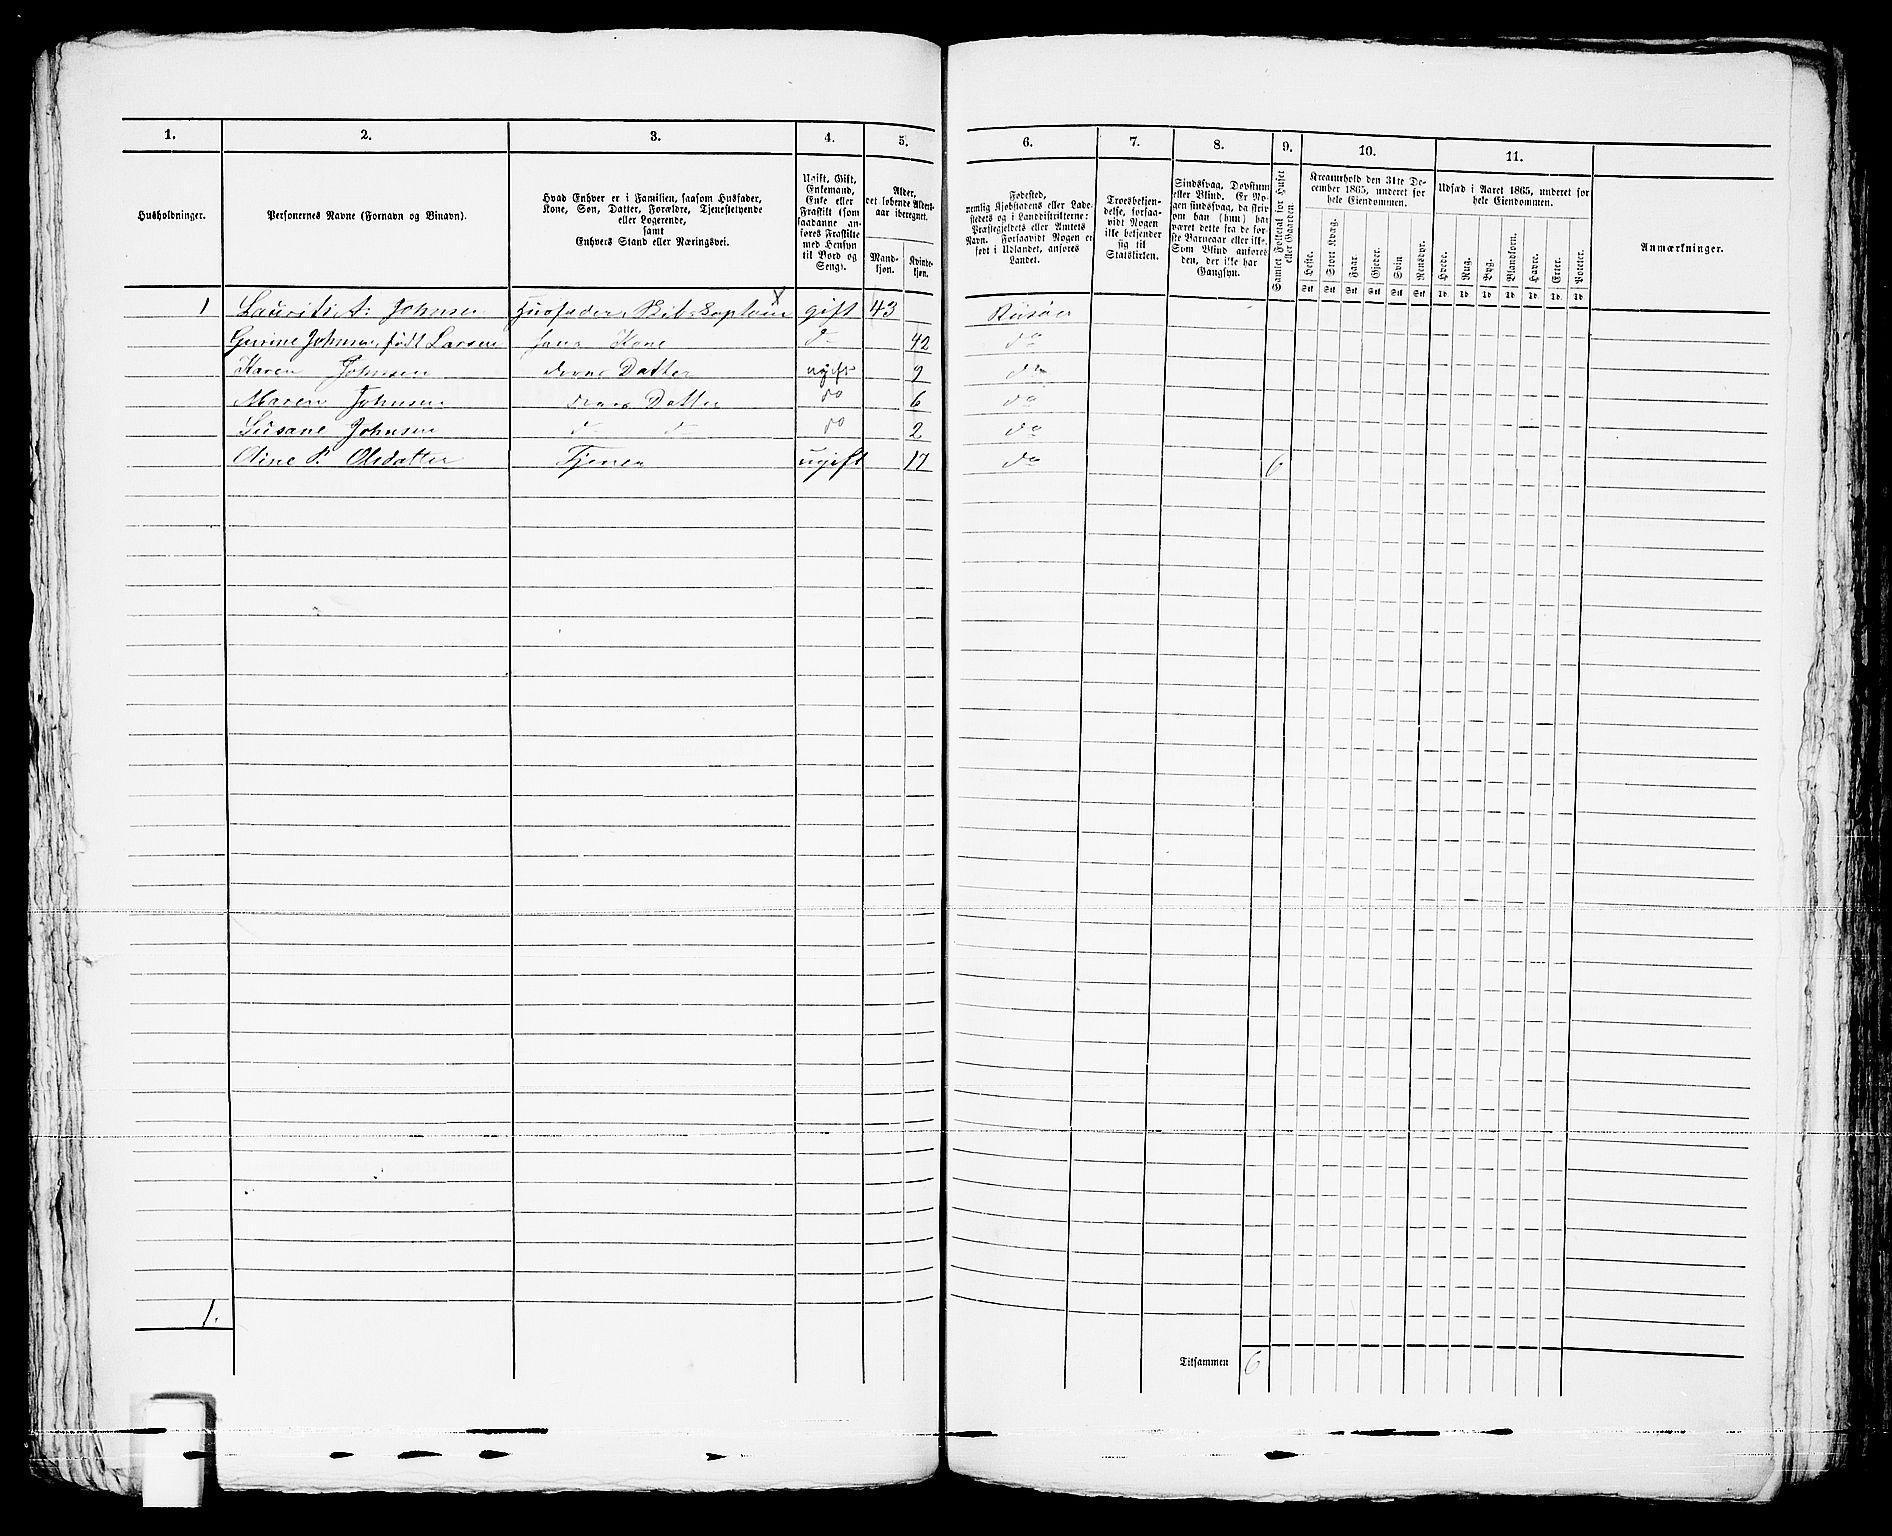 1. 2. 3. 4. 5. 6. 7. 8. 9. 10. 11.
Husholdninger.
Personernes Navne (Fornavn og Binavn).
Hvad Enhver er i Familien, saasom Husfader,
Kone, Søn, Datter, Forældre, Tjenestetyende
eller Logerende,
samt
Enhvers Stand eller Næringsvei.
Ugift, Gift,
Enkemand,
Enke eller
Fraskilt (som
saadanne an-
føres Fraskilte
med Hensyn
til Bord og
Seng).
Alder,
det løbende Alders-
aar iberegnet.
Mand-
kjøn.
Kvinde-
kjøn.
Fødested,
nemlig Kjøbstadens eller Lade-
stedets og i Landdistrikterne:
Præstegjeldets eller Amtets
Navn. Forsaavidt Nogen er
født i Udlandet, anføres
Landet.
Troesbekjen-
delse, forsaa-
vidt Nogen
ikke bekjender
sig til
Statskirken.
Sindssvag, Døvstum
eller Blind. Er No-
gen sindssvag, da skriv
om han (hun) har
været dette fra de før-
ste Barneaar eller ikke.
Som Blind anføres
den, der ikke har
Gangsyn.
Samlet Folketal for Huset
eller Gaarden.
Kreaturhold den 31te De-
cember 1865, underet for
hele Eiendommen.
Heste. Stort Kvæg. Faar. Gjeder. Svin Rensdyr.
Stk Stk Stk Stk Stk Stk
Udsæd i Aaret 1865, underet for
hele Eiendommen.
Hvede. Rug. Byg. Blandkorn. Havre. Erter. Poteter.
Td. Td. Td. Td. Td. Td. Td.
Anmærkninger.
1 Lauritz A. Johnsen Husfader, Skibskaptein gift 43 Risøer
Gurine Johnsen født Larsen hans Kone do 42 do
Karen Johnsen deres Datter ugift 9 do
Maren Johnsen deres Datter do 6 do
Susane Johnsen d d do 2 do
P. Olsdatter Tjener ugift 17 do 6
1.
Tilsammen 6